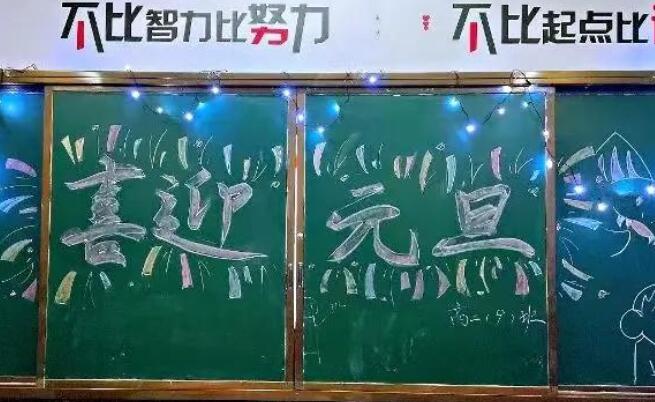 不比智力比努力
不比起点比
喜迎元旦
高二(9)班